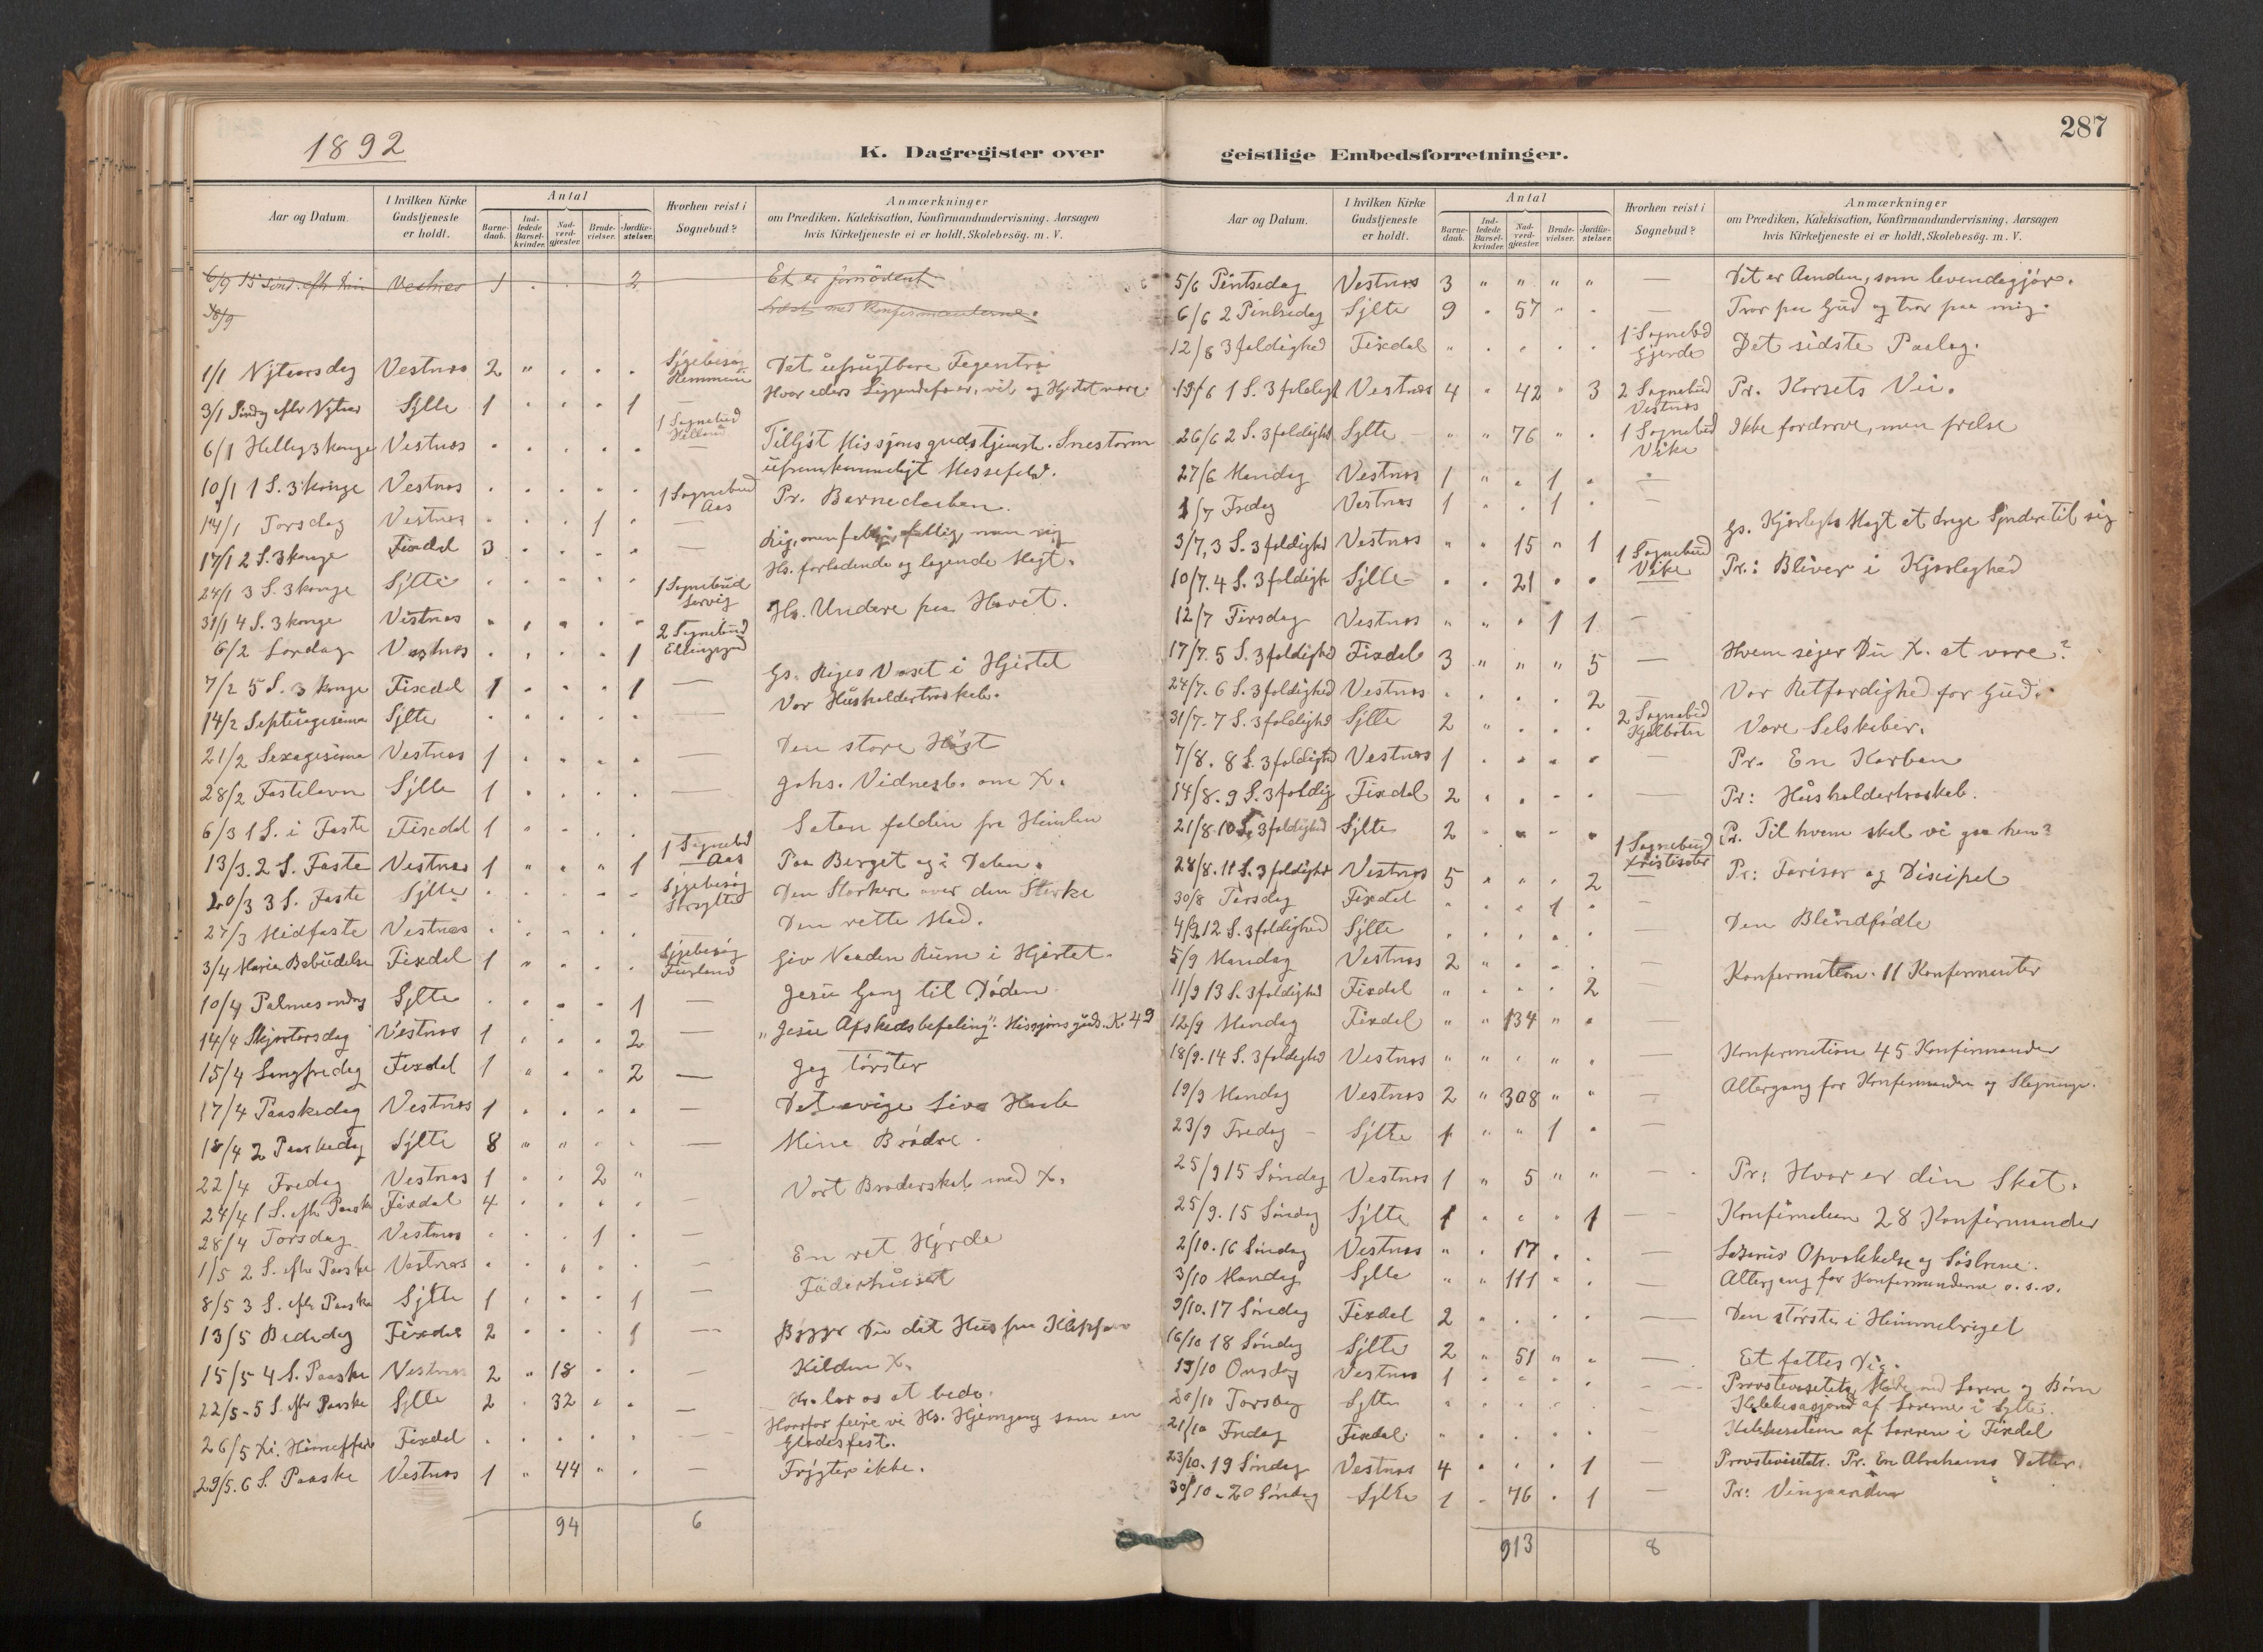 1892
K. Dagregister over
Aar og Datum.
I hvilken Kirke Gudstjeneste er holdt.
Antal
Barne-daab.
Ind-ledede Barsel-kvinder.
Nad-verd-gjæster.
Brude-vielser.
Jordfæ-stelser.
Hvorhen reist i Sognebud?
Anmærkninger
om Prædiken, Katekisation, Konfirmandundervisning. Aarsagen
hvis Kirketjeneste ei er holdt, Skolebesøg. m. V.
6/9 15 Vestnes 1 . . . 2 Et er fornødent
18/9 med Konfirmanterne.
1/1 Nytaarsdag Vestnes 2 " . . . Sygebesøg Det ufrugtbare Fegentræ
3/1 Søndag efter Nytaar Sylte 1 . . . 1 — Hvor eders er, vil og Hjertet være
6/1 Hellig 3 konge Vestnes . . . . . 1 Sognebud Tillyst Missjonsgudstjeneste. Snestorm
10/1 1 S. 3 konge Vestnes . . . . . Messefald.
14/1 Torsdag Vestnes . . . 1 . 1 Sognebud Aas Pr. Barnedaaben.
17/1 2 S. 3 konge Fixdal 3 . . . . — Rig, men fattig, fattig, men rig
24/1 3 S. 3 konge Sylte . . . . . — Hs. forladende og Magt.
31/1 4 S. 3 konge Vestnes . . . . . 1 Sognebud Hs. Undere paa Havet.
6/2 Lørdag Vestnes . . . . 1 2 Sognebud
7/2 5 S. 3 konge Fixdal 1 . . . 1 — Gs. Riges Vext i Hjertet
14/2 Septuagesima Sylte . . . . . — Vor Husholdertroskab.
21/2 Sexagesima Vestnes 1 . . . . — Den store Høst
28/2 Fastelavn Sylte 1 . . . . — Johs. Vidnesb. om X.
6/3 1 S. i Faste Fixdal 1 . . . . Satan falden fra Himlen
13/3. 2 S. Faste Vestnes 1 " . " 1 1 Sognebud Aas Paa Berget og i Dalen.
20/3 3 S. Faste Sylte . . . . . Sygebesøg Den Stærkere over den Stærke
27/3 Midfaste Vestnes . . . . . Den rette Mad.
3/4 Maria Bebudelse Fixdal 1 " . . . Sygebesøg Giv Naaden Rum i Hjertet.
10/4 Palmesøndag Sylte . . . . 1 — Jesu Gang til Døden
14/4 Skjærtorsdag Vestnes 1 . . . 2 — "Jesu Afskedsbefaling". Missjonsguds. K. 49
15/4 Langfredag Fixdal 1 " . . 2 — Jeg tørster
17/4 Paaskedag Vestnes 1 . . . . — Det evige Livs Haab
18/4 2 Paaskedag Sylte 8 " " . . — Mine Brødre.
22/4 Fredag Vestnes 1 . . 2 "
24/4 1 S. efter Paaske Fixdal 4 . . . . — Vort Broderskab med X.
28/4 Torsdag Vestnes . . . 1 . —
1/5 2 S. efter Paaske Vestnes . . . . . — En ret Hyrde
8/5 3 S. efter Paaske Sylte 1 . . . 1 — Faderhuset
13/5 Bededag Fixdal 2 . . . 1 — Bygger Du dit Hus paa Klippen
15/5 4 S. Paaske Vestnes 2 " 18 . . — Kilden X.
22/5. 5 S. efter Paaske Sylte 2 . 32 . . — Hr. lær os at bede.
26/5 Xi. Himmelfart Fixdal . . . . . — Hvorfor feire vi Hs. Hjemgang som en Glædesfest.
29/5. 6 S. Paaske Vestnes 1 " 44 " . — Frygter ikke.
94 6
287
geistlige Embedsforretninger.
Aar og Datum.
I hvilken Kirke Gudstjeneste er holdt.
Antal
Barne-daab.
Ind-ledede Barsel-kvinder.
Nad-verd-gjæster.
Brude-vielser.
Jordfæ-stelser.
Hvorhen reist i Sognebud?
Anmærkninger
om Prædiken, Katekisation, Konfirmandundervisning. Aarsagen
hvis Kirketjeneste ei er holdt, Skolebesøg. m. V.
5/6 Pintsedag Vestnes 3 " " " " — Det er Aanden, som levendegjør.
6/6 2 Pintsedag Sylte 9 . 57 . . — Tror paa Gud og tror paa mig.
12/6 3foldighed Fixdal " . . . . 1 Sognebud Gjerde Det sidste Paalæg.
19/6 1 S. 3foldighed Vestnes 4 . 42 " 3 2 Sognebud Vestnes Pr. Korsets Vei.
26/6 2 S. 3foldighed Sylte " " 76 " . 1 Sognebud Vike Ikke fordærve, men frelse
27/6 Mandag Vestnes 1 " . 1 . —
1/7 Fredag Vestnes 1 . . 1 . —
3/7, 3 S. 3foldighed Vestnes " " 15 " 1 Gs. Kjærligheds Magt at drage Syndere til sig
10/7. 4 S. 3foldigh Sylte . . 21 . . 1 Sognebud Vike Pr.: Bliver i Kjærlighed
12/7 Tirsdag Vestnes " " . 1 1 —
17/7. 5 S. 3foldighd Fixdal 3 " " " 5 — Hvem siger Du X. at være?
24/7. 6 S. 3foldighed Vestnes . . . . 2 Vor Retfærdighed for Gud.
31/7. 7 S. 3foldighd Sylte 2 " . . . 2 Sognebud Vore Selskaber.
7/8. 8 S. 3foldighd Vestnes 1 . . . . — Pr. En Korban
14/8. 9 S. 3foldig Fixdal 2 . . . . — Pr: Husholdertroskab.
21/8. 10 S. 3foldighed Sylte 2 . . . . Pr. Til hvem skal vi gaa hen?
28/8. 11 S. 3foldighd Vestnes 5 . . . 2 1 Sognebud Pr: Farisær og Discipel
30/8 Tirsdag Fixdal . . . 1 . —
4/9. 12 S. 3foldighed Sylte . . . . . — Den Blindfødte
5/9 Mandag Vestnes 2 " . . . —
11/9 13 S. 3foldighed Fixdal " . . . 2 Konfirmation. 11 Konfirmanter
12/9 Mandag Fixdal " " 134 " .
18/9. 14 S. 3foldighed Vestnes " " . " . — Konfirmation 45 Konfirmander
19/9 Mandag Vestnes 2 " 308 " " — Altergang for Konfirmander og
23/9 Fredag – Sylte 1 . " 1 . —
25/9 15 Søndag Vestnes 1 " 5 " " — Pr: Hvor er din Skat.
25/9. 15 Søndag Sylte 1 . . . 1 — Konfirmation 28 Konfirmander
2/10. 16 Søndag Vestnes " . 17 . . — Lazarus Opvækkelse og Søstrene.
3/10 Mandag Sylte " " 111 " . — Altergang for Konfirmanderne o.s.v.
9/10. 17 Søndag Fixdal 2 . . . . — Den største i Himmelriget
16/10 18 Søndag Sylte 2 " 51 " . — Et fattes Dig.
19/10 Onsdag Vestnes 1 . . . . — Provstevisitats, Møde med Lærere og Børn
20/10 Torsdag Sylte . . . . . — af Lærerne i Sylte.
21/10 Fredag Fixdal " . . . . — Katekisation af Læreren i Fixdal
23/10. 19 Søndag Vestnes 4 . . . 1 — Provstevisitats. Pr. En Abrahams Datter.
30/10. 20 Søndag Sylte 1 . 76 . 1 — Pr: Vingaarden
913 8